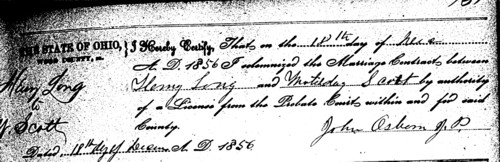 THE STATE OF OHIO, } I Hereby Certify, That on the 18th day of
WOOD COUNTY, ss. A. D. 1856 I solemnized the Marriage Contract between
Henry Long Henry Long and Scott by authority
to of a License from the Probate Court within and for said
Scott County. John Osborn J. P.
Dated 18th day of A. D. 1856